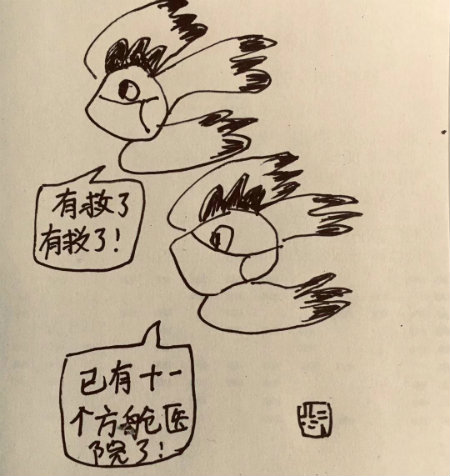 有救了
有救了！
已有十一
个方舱医
院了！